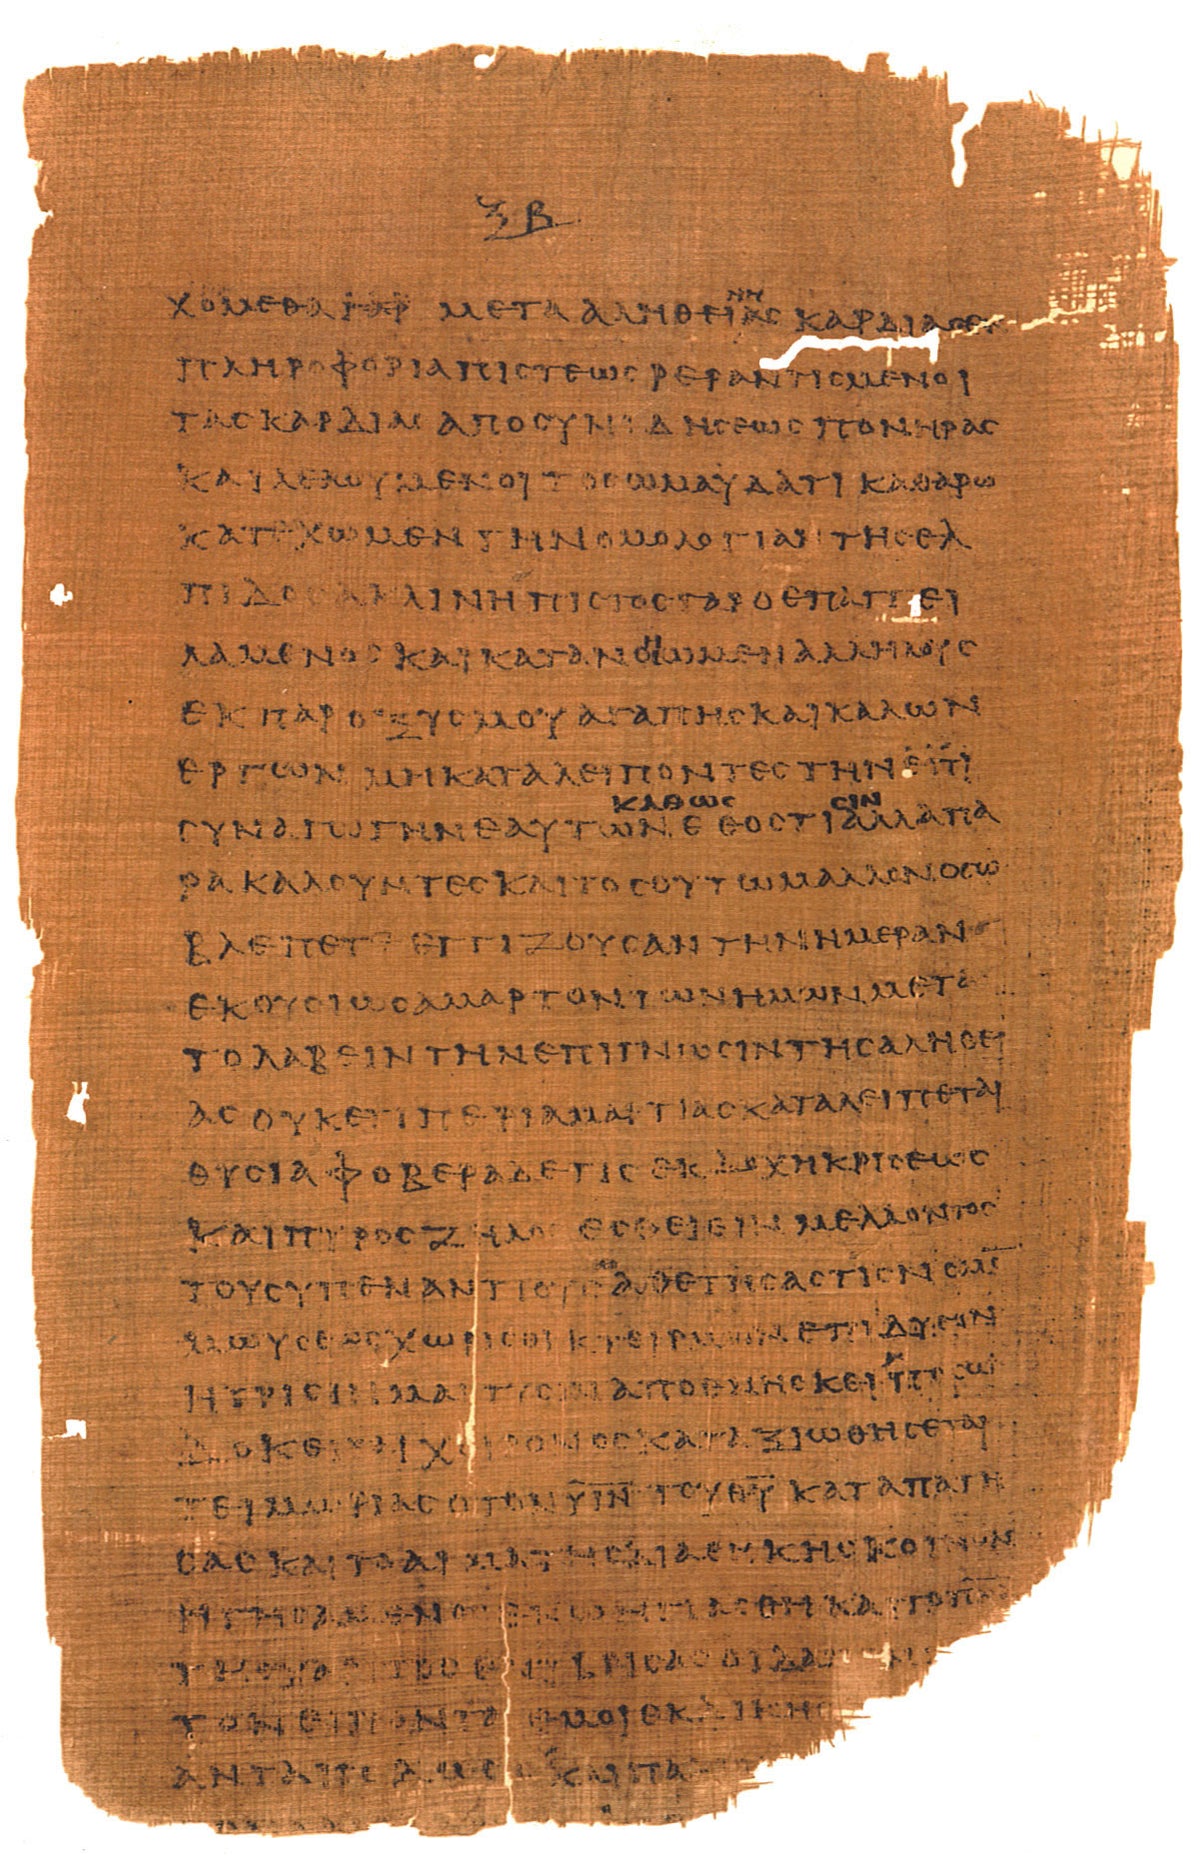 ξβ
χομεθα γαρ μετα αληθεινης καρδιας εν
πληροφορια πιστεως ρεραντισμενοι
τας καρδιας απο συνιδησεως πονηρας
και λελουμενοι το σωμα υδατι καθαρω
κατεχωμεν την ομολογιαν της ελ
πιδος ακλινη πιστος γαρ ο επαγγει
λαμενος και κατανοωμεν αλληλους
εκ παροξυσμου αγαπης και καλων
εργων μη καταλειποντες την επι
συναγωγην εαυτων καθως εθος τισιν αλλα πα
ρακαλουντες και τοσουτω μαλλον οσω
βλεπετε εγγιζουσαν την ημεραν
εκουσιως αμαρτοντων ημων μετα
το λαβειν την επιγνωσιν της αληθει
ας ουκετι περι αμαρτιας καταλειπεται
θυσια φοβερα δε τις εκδοχη κρισεως
και πυρος ζηλος εσθειειν μελλοντος
τους υπεναντιους αθετησας τις νομον
μωυσεως χωρις οικτειρμων επι δυσιν
η τρισιν μαρτυσιν αποθνησκει
δοκειται χειρονος καταξιωθησεται
τειμωριας ο τον υιν του θυ καταπατη
σας και το αιμα της διαθηκης κοινον
ηγησαμενος εν ω ηγιασθη και το πνα
της χαριτος ενυβρισας οιδαμεν
τον ειποντα εμοι εκδικησ
ανταποδωσω και πα